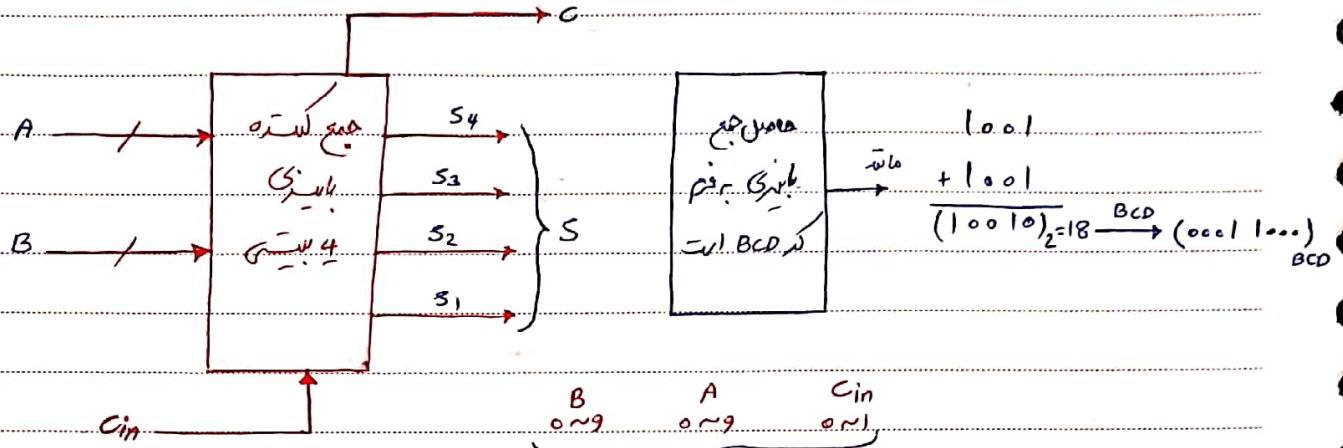 C
A
B
جمع کننده
باینری
4 بیتی
S4
S3
S2
S1
S
Cin
حاصل جمع
باینری به فرم
کد BCD است
مانند
1001
+ 1001
(10010)2=18 BCD (0001 1000)BCD
B A Cin
0~9 0~9 0~1